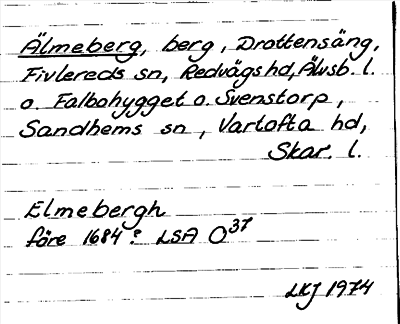 Älmeberg, berg, Drottensäng,
Fivlereds sn, Redvägs hd, Älvsb. l.
o. Falbohygget o. Svenstorp,
Sandhems sn, Vartofta hd,
Skar. l.
Elmebergh
före 1684? LSA O37
LKJ 1974